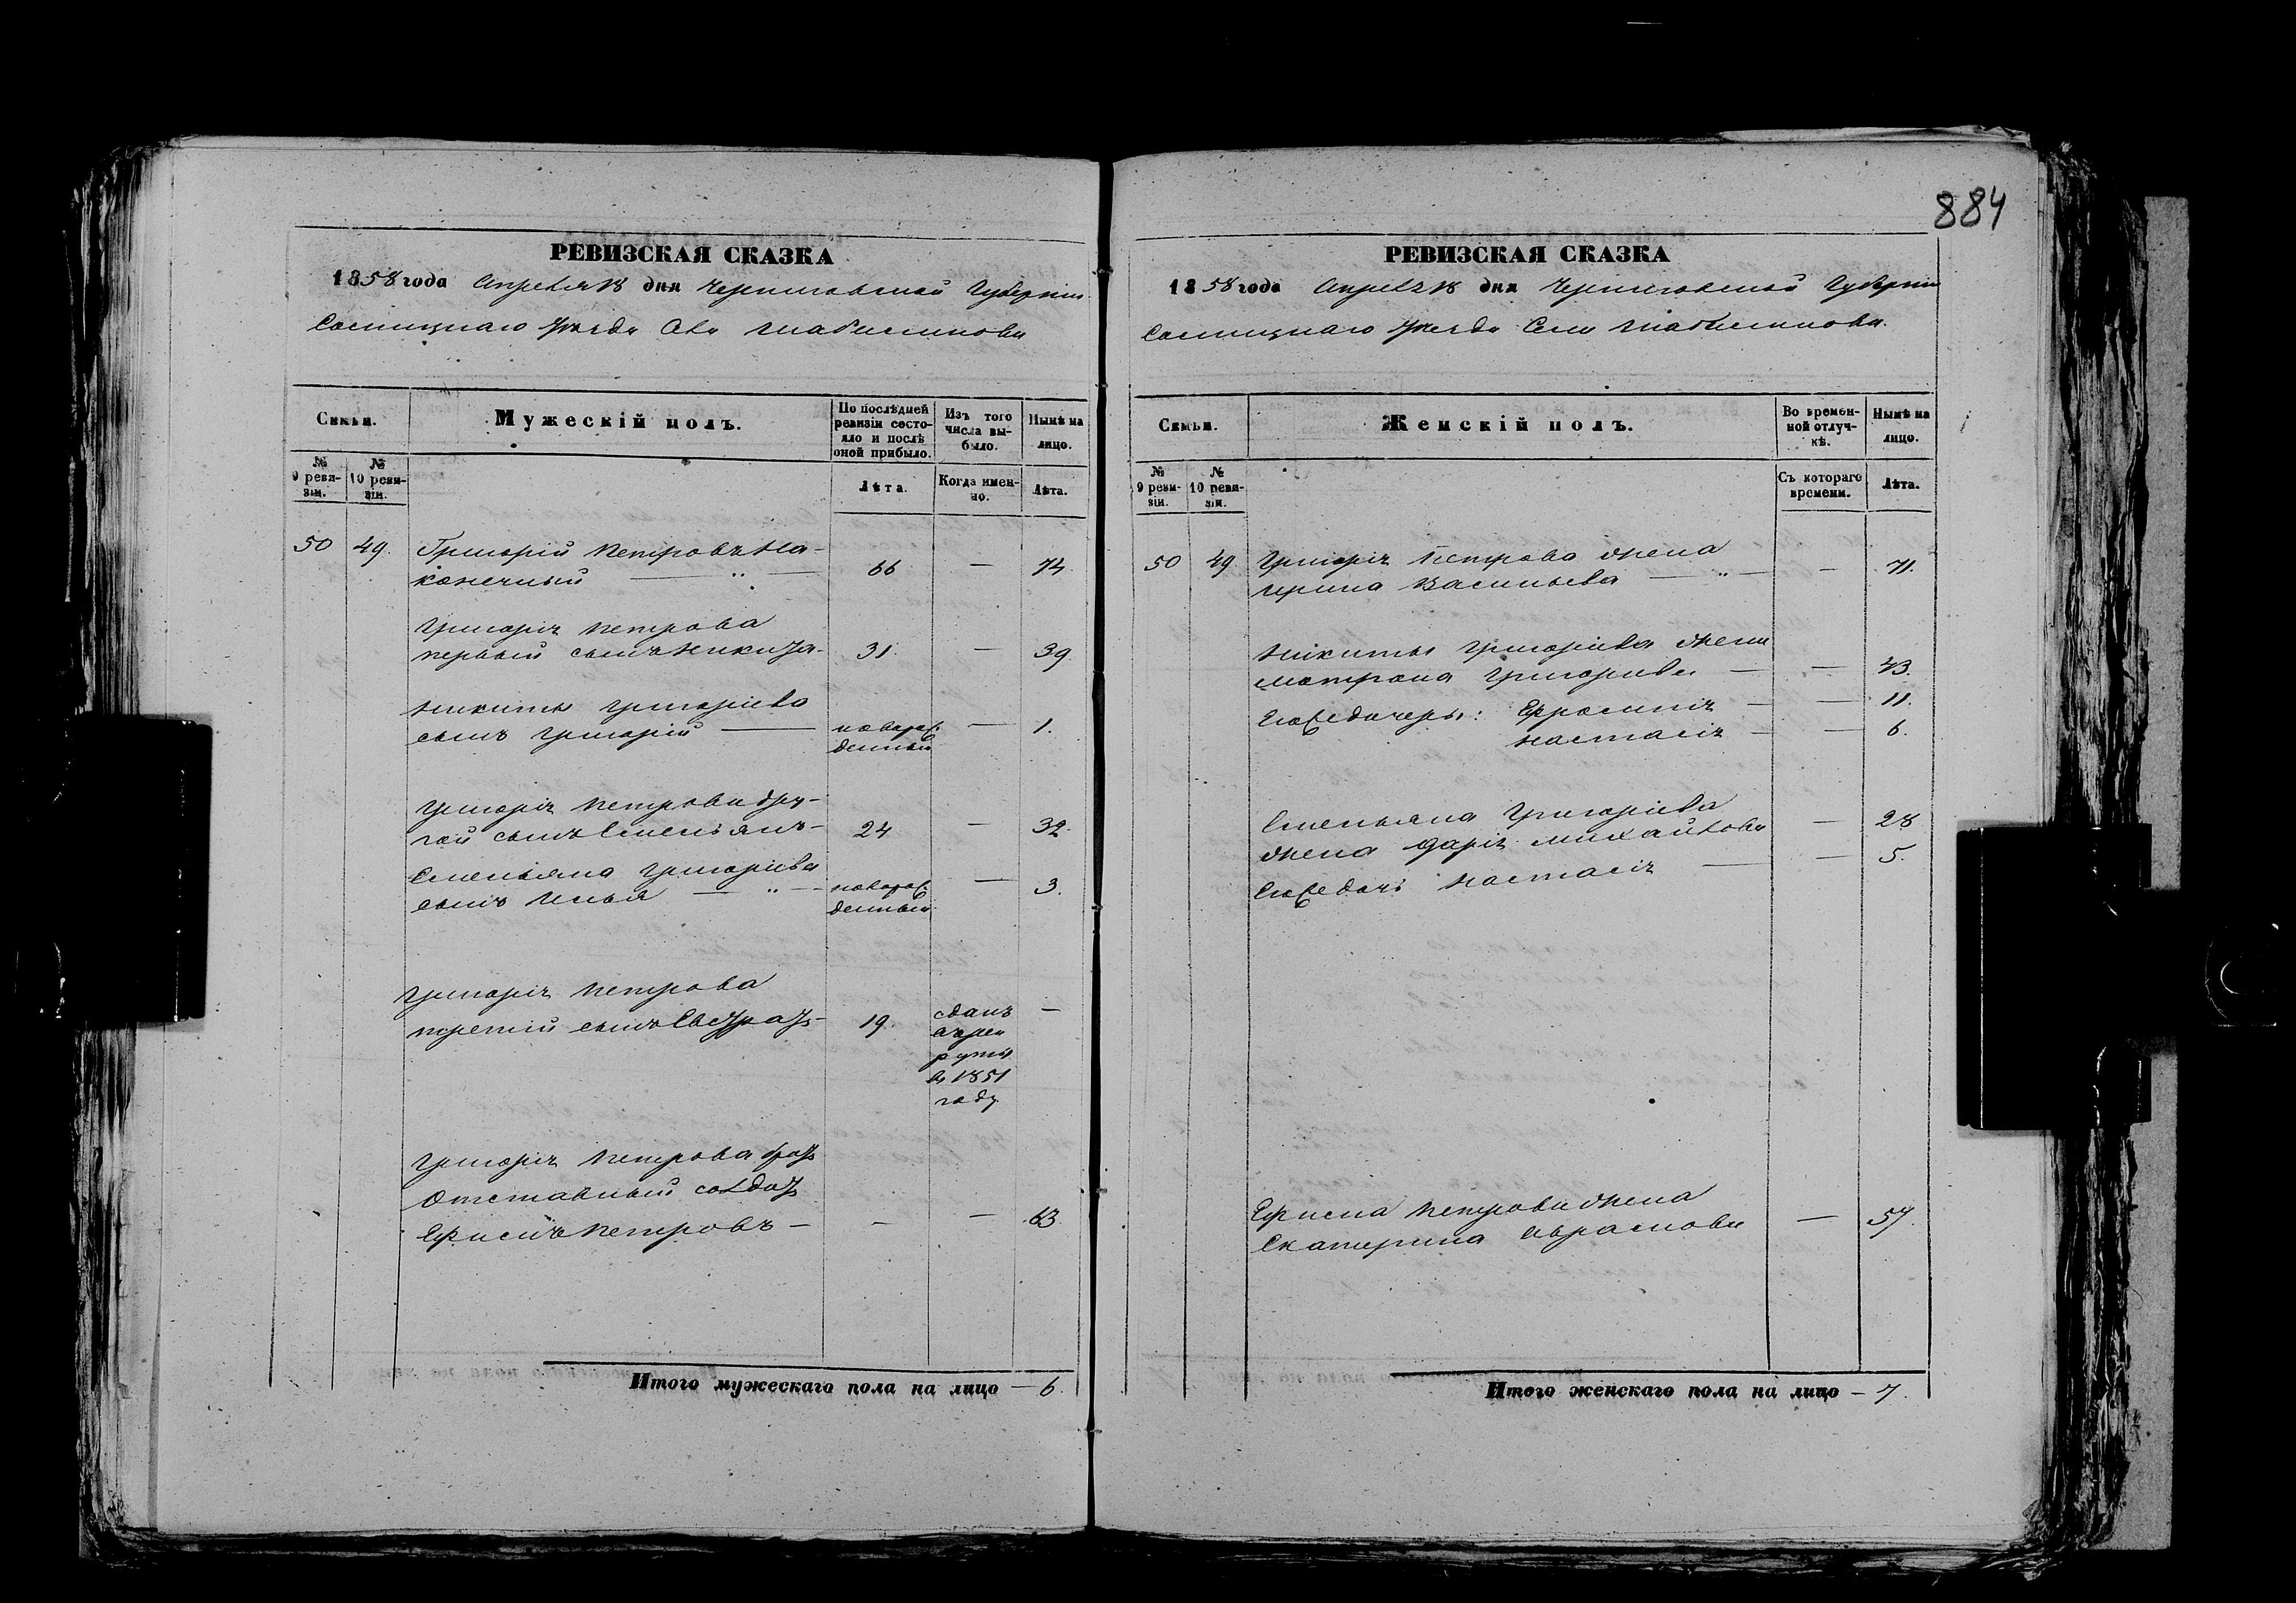 884
РЕВИЗСКАЯ СКАЗКА
1858 года Апреля 18 дня Черниговской Губернии
Сосницкаго уезда Села
Семьи.
Мужескій полъ.
По послѣдней ревизіи состояло и послѣ оной прибыло.
Изъ того числа выбыло.
Нынѣ на лицо.
№ 9 ревизіи.
№ 10 ревизіи.
Лѣта.
Когда именно.
Лѣта.
50 49. Григорій Петровъ На-
конечный — 66 — 74.
Григорія Петрова
первый сынъ Никита — 31. — 39.
Никиты Григоріева
сынъ Григорій — новорож-
денный — 1.
Григорія Петрова дру-
гой сынъ Емельянъ — 24 — 32.
Емельяна Григоріева
сынъ Илья — новорож-
денный — 3.
Григорія Петрова
третій сынъ Евстрат — 19. сданъ
в рекруты
в 1851
году —
Григорія Петрова брат
Отставный солдат
Ефимъ Петровъ — — — 63.
Итого мужескаго пола на лицо — 6.
РЕВИЗСКАЯ СКАЗКА
1858 года Апреля 18 дня Черниговской Губернии
Сосницкаго уезда Села
Семьи.
Женскій полъ.
Во временной отлучкѣ.
Нынѣ на лицо.
№ 9 ревизіи.
№ 10 ревизіи.
Съ котораго времени.
Лѣта.
50 49. Григорія Петрова жена
Ирина Васильева — — 71.
Никиты Григоріева жена
Матрона Григорьева — — 43.
Его же дочери: Ефросинія — — 11.
Настасія — — 6.
Емельяна Григоріева
жена Дарія Михайлова — 28
Его же дочь Настасія — — 5.
Ефима Петрова жена
Екатерина Аврамова — 57.
Итого женскаго пола на лицо — 7.